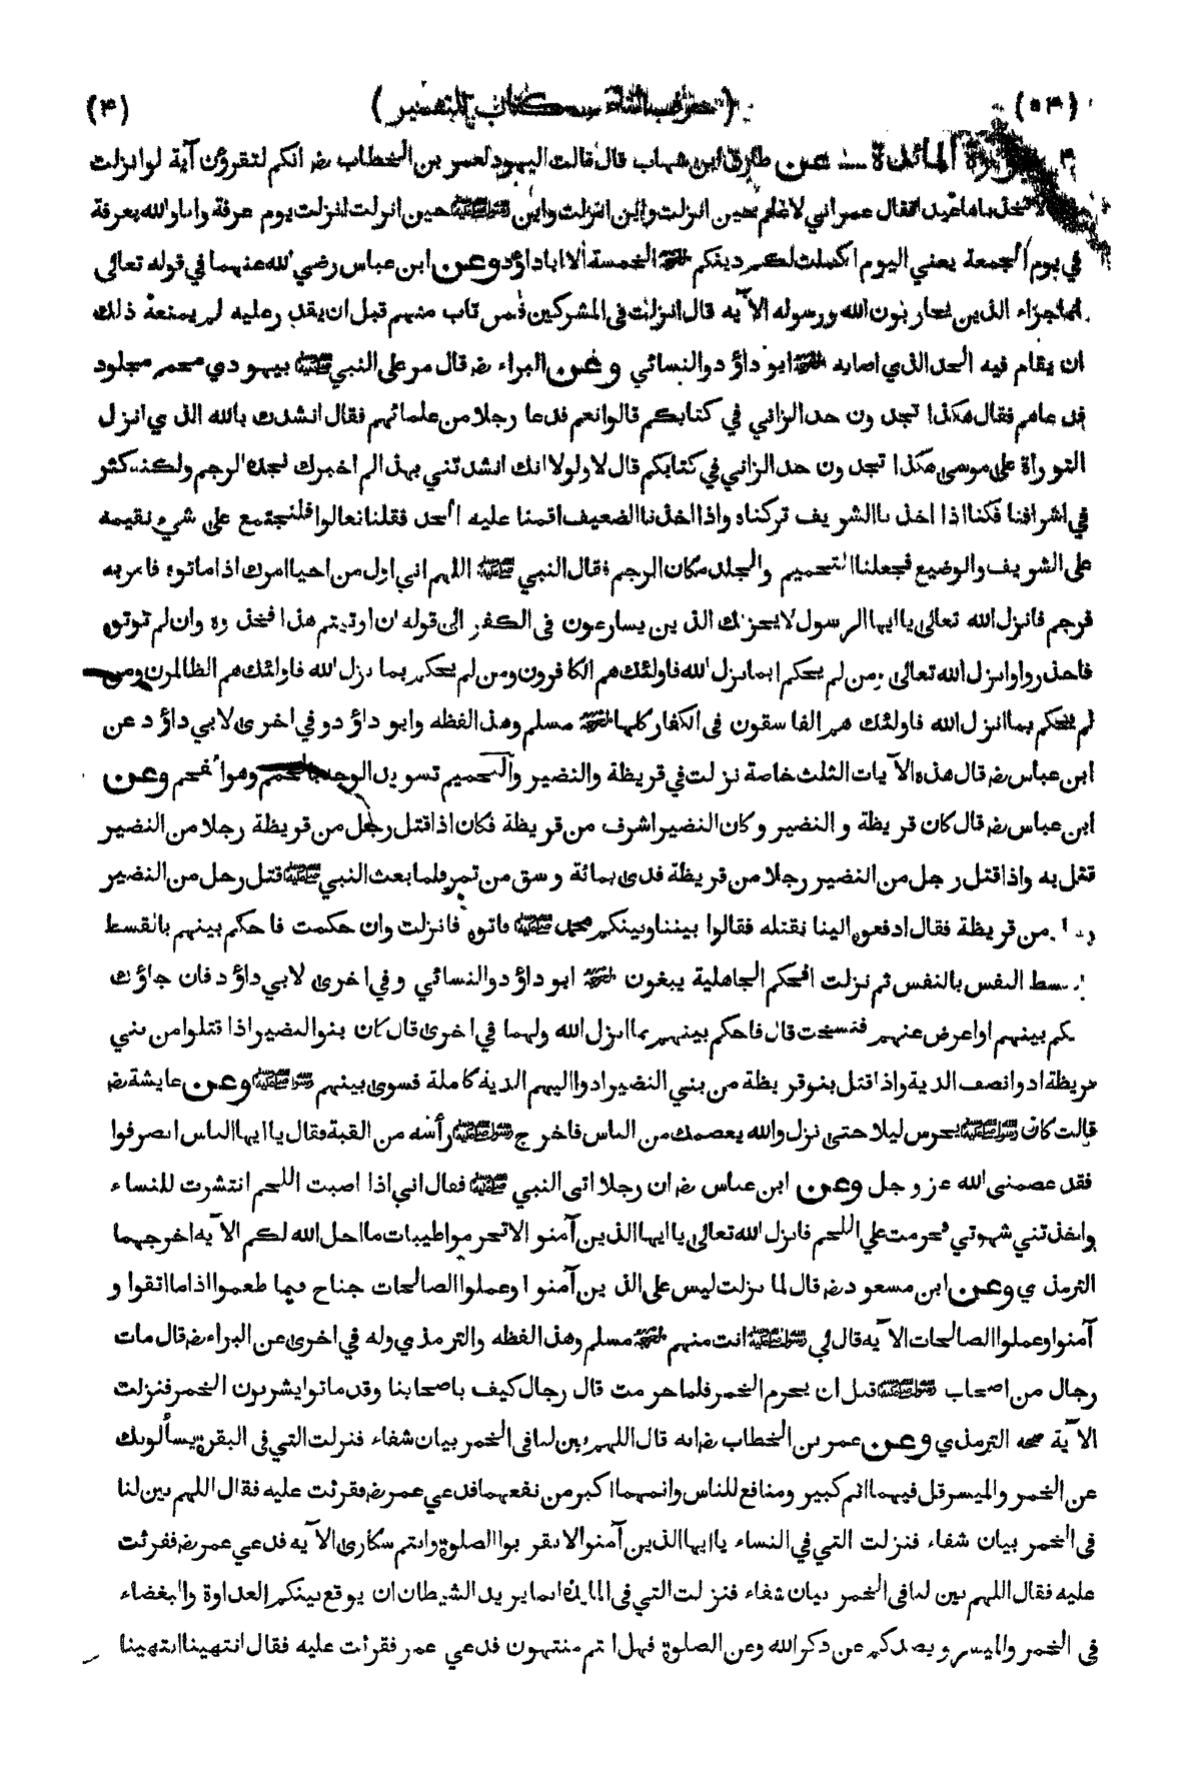 (۵۳) (حرف التاء — كتاب التفسير) (۴)
سورة المائدة — عن طارق ابن شهاب قال قالت اليهود لعمر بن الخطاب رض انكم لتقرؤن آية لو انزلت
لاتخذناها عيدا فقال عمر اني لاعلم حين انزلت واين انزلت واين ﷺ حين انزلت انزلت يوم عرفة وانا والله بعرفة
في يوم الجمعة يعني اليوم اكملت لكم دينكم الخمسة الا ابا داؤد وعن ابن عباس رضي الله عنهما في قوله تعالى
انما جزاء الذين يحاربون الله ورسوله الآيه قال انزلت فى المشركين فمن تاب منهم قبل ان يقدر عليه لم يمنعة ذلك
ان يقام فيه الحد الذي اصابه ابو داؤد والنسائي وعن البراء رض قال مر على النبي ﷺ بيهودي محمم مجلود
فدعاهم فقال هكذا تجدون حد الزاني في كتابكم قالوا نعم فدعا رجلا من علمائهم فقال انشدك بالله الذي انزل
التوراة على موسى هكذا تجدون حد الزاني في كتابكم قال لا ولولا انك انشدتني بهذا لم اخبرك نجده الرجم ولكنه كثر
في اشرافنا فكنا اذا اخذنا الشريف تركناه واذا اخذنا الضعيف اقمنا عليه الحد فقلنا تعالوا فلنجتمع على شيء نقيمه
على الشريف والوضيع فجعلنا التحميم والجلد مكان الرجم فقال النبي ﷺ اللهم اني اول من احيا امرك اذ اماتوه فامر به
فرجم فانزل الله تعالى يا ايها الرسول لا يحزنك الذين يسارعون فى الكفر الى قوله ان اوتيتم هذا فخذوه وان لم توتوه
فاحذروا وانزل الله تعالى ومن لم يحكم بما انزل الله فاولئك هم الكافرون ومن لم يحكم بما نزل الله فاولئك هم الظالمون ومن
لم يحكم بما انزل الله فاولئك هم الفاسقون فى الكفار كلها مسلم وهذا لفظه وابو داؤد وفي اخرى لابي داؤد عن
ابن عباس رض قال هذه الآيات الثلث خاصة نزلت في قريظة والنضير والتحميم تسويد الوجه بالحمم وهو الفحم وعن
ابن عباس رض قال كان قريظة والنضير وكان النضير اشرف من قريظة فكان اذا قتل رجل من قريظة رجلا من النضير
قتل به واذا قتل رجل من النضير رجلا من قريظة فدى بمائة وسق من تمر فلما بعث النبي ﷺ قتل رجل من النضير
من قريظة فقال ادفعوه الينا نقتله فقالوا بيننا وبينكم محمد ﷺ فاتوه فانزلت وان حكمت فاحكم بينهم بالقسط
النفس بالنفس ثم نزلت افحكم الجاهلية يبغون ابو داؤد والنسائي وفي اخرى لابي داؤد فان جاؤك
بينهم او اعرض عنهم فنسخت قال فاحكم بينهم بما انزل الله ولهما في اخرى قال كان بنو النضير اذا قتلوا من بني
قريظة ادوا نصف الدية واذا قتل بنو قريظة من بني النضير ادوا اليهم الدية كاملة فسوى بينهم ﷺ وعن عايشة رض
قالت كان ﷺ يحرس ليلا حتى نزل والله يعصمك من الناس فاخرج ﷺ رأسه من القبة فقال يا ايها الناس انصرفوا
فقد عصمنى الله عز وجل وعن ابن عباس رض ان رجلا اتى النبي ﷺ فقال اني اذا اصبت اللحم انتشرت للنساء
واخذتني شهوتي فحرمت علي اللحم فانزل الله تعالى يا ايها الذين آمنوا لا تحرموا طيبات ما احل الله لكم الآيه اخرجهما
الترمذي وعن ابن مسعود رض قال لما نزلت ليس على الذين آمنوا وعملوا الصالحات جناح فيما طعموا اذا ما اتقوا و
آمنوا وعملوا الصالحات الآيه قال لي ﷺ انت منهم مسلم وهذا لفظه والترمذي وله في اخرى عن البراء رض قال مات
رجال من اصحاب ﷺ قبل ان يحرم الخمر فلما حرمت قال رجال كيف باصحابنا وقد ماتوا يشربون الخمر فنزلت
الآية صححه الترمذي وعن عمر بن الخطاب رض انه قال اللهم بين لنا فى الخمر بيان شفاء فنزلت التي فى البقرة يسألونك
عن الخمر والميسر قل فيهما اثم كبير ومنافع للناس واثمهما اكبر من نفعهما فدعي عمر رض فقرئت عليه فقال اللهم بين لنا
فى الخمر بيان شفاء فنزلت التي في النساء يا ايها الذين آمنوا لا تقربوا الصلوة وانتم سكارى الآيه فدعي عمر رض فقرئت
عليه فقال اللهم بين لنا فى الخمر بيان شفاء فنزلت التي فى المائدة انما يريد الشيطان ان يوقع بينكم العداوة والبغضاء
فى الخمر والميسر ويصدكم عن ذكر الله وعن الصلوة فهل انتم منتهون فدعي عمر فقرئت عليه فقال انتهينا انتهينا